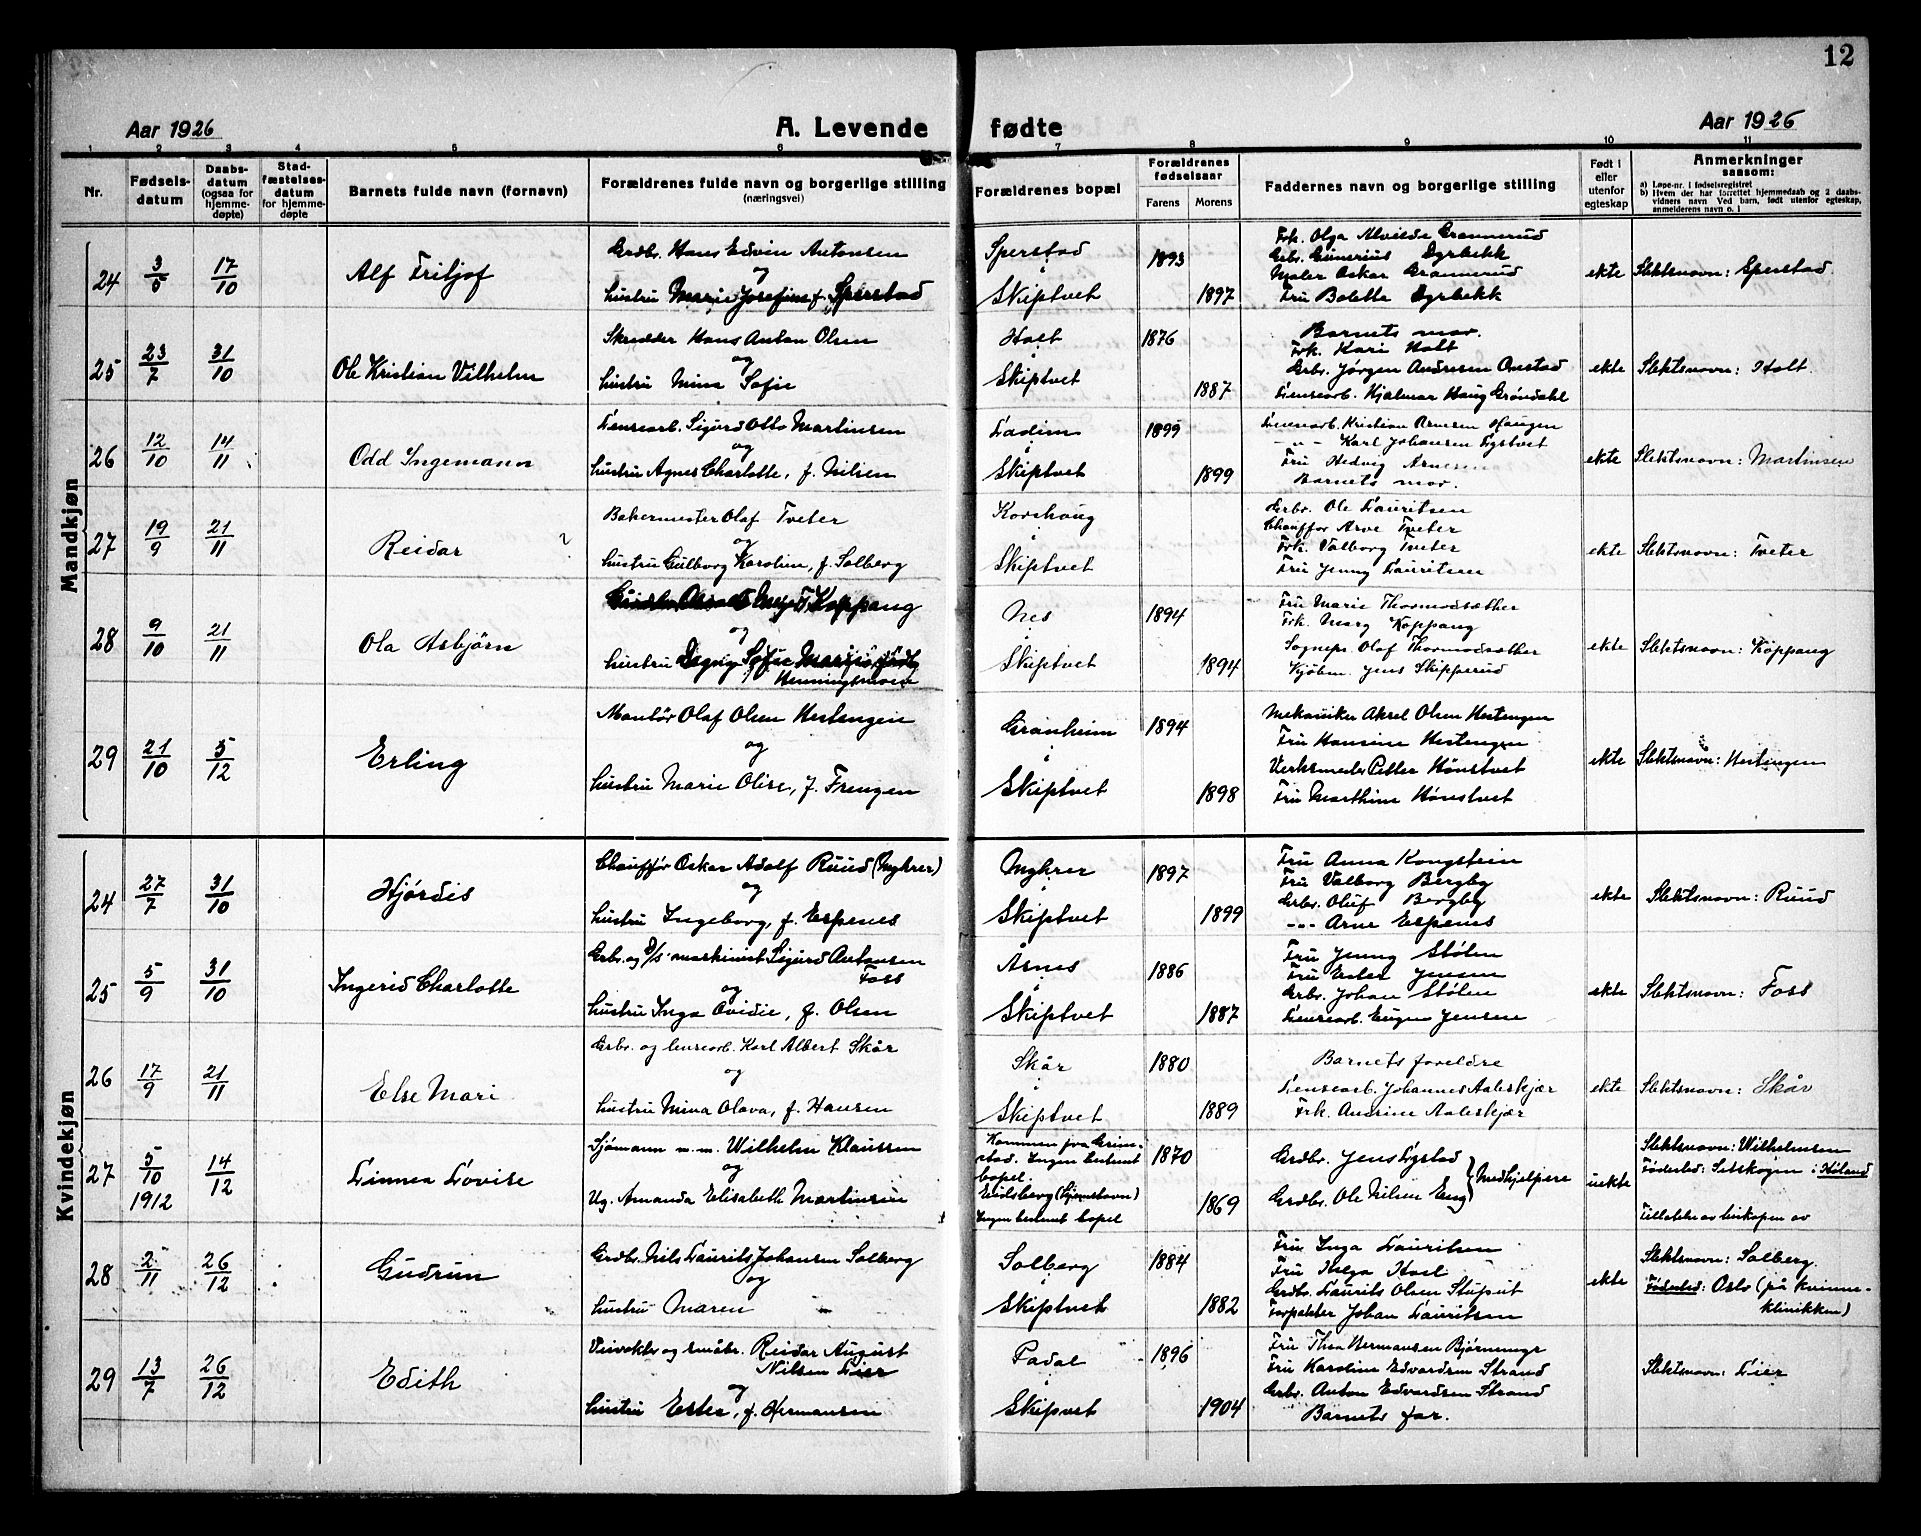 12
Aar 1926
A. Levende
fødte
Aar 1926
1 2 3 4 5 6 7 8 9 10 11
Nr.
Fødsels-
datum
Daabs-
datum
(ogsaa for
hjemme-
døpte)
Stad-
fæstelses-
datum
for hjemme-
døpte
Barnets fulde navn (fornavn)
Forældrenes fulde navn og borgerlige stilling
(næringsvei)
Forældrenes bopæl
Forældrenes
fødselsaar
Farens
Morens
Faddernes navn og borgerlige stilling
Født i
eller
utenfor
egteskap
Anmerkninger
saasom:
a) Løpe-nr. i fødselsregistret
b) Hvem der har forrettet hjemmedaab og 2 daabs-
vidners navn Ved barn, født utenfor egteskap,
anmelderens navn o. l
Mandkjøn
24
17/10
Alf Fritjof
Grdbr. Hans Edvin Antonsen
og
hustru Marie Josefine f. Sperstad
Sperstad
i
Skiptvet
1893
1897
Frk. Olga Alvilde Grannerud
Grbr. Gunerius Dyrbekk
Maler Oskar Grannerud
Fru Bolette Dyrbekk
ekte
Slektsnavn: Sperstad
25
23/7
31/10
Ole Kristian Vilhelm
Skredder Hans Anton Olsen
og
hustru Mina Sofie
Holt
i
Skiptvet
1876
1887
Barnets mor.
Frk. Kari Holt
Grbr. Jørgen Andresen Onstad
Lensearb. Hjalmar Haug Grøndahl
ekte
Slektsnavn: Holt.
26
12/10
14/11
Odd Ingemann
Lensearb. Sigurd Otto Martinsen
og
hustru Agnes Charlotte, f. Nilsen
Ladim
i
Skiptvet
1899
1899
Lensearb. Kristian Arnesen Haugen
-"- Karl Johansen Lystvet
Fru Hedvig Arnesen
Barnets mor.
ekte
Slektsnavn: Martinsen
27
19/9
21/11
Reidar
?
Bakermester Olaf Tveter
og
hustru Gulborg Karoline, f. Solberg
Korshaug
i
Skiptvet
Grbr. Ole Lauritsen
Chauffør Arve Tveter
Frk. Valborg Tveter
Fru Jenny Lauritsen
ekte
Slektsnavn: Tveter
28
9/10
21/11
Ola Asbjørn
Koppang
og
hustru Dagny Sofie Marie, født
Henningsmoen
Nes
i
Skiptvet
1894
1894
Fru Marie Thormodsæther
Frk. Mary Koppang
Sognepr. Olaf Thormodsæther
Kjøbm. Jens Skipperud
ekte
Slektsnavn: Koppang
29
21/10
5/12
Erling
Montør Olaf Olsen Hestengen
og
hustru Marie Olise, f. Frengen
Granheim
i
Skiptvet
1894
1898
Mekaniker Aksel Olsen Hestengen
Fru Hansine Hestengen
Verksmester Petter Hønstvet
Fru Marthine Hønstvet
ekte
Slektsnavn: Hestengen
Kvindekjøn
24
27/7
31/10
Hjørdis
Chauffør Oskar Adolf Ruud (Myhrer)
og
hustru Ingeborg, f. Espenes
Myhrer
i
Skiptvet
1897
1899
Fru Anna Kongstein
Fru Valborg Bergby
Grbr. Oluf Bergby
-"- Arne Espenes
ekte
Slektsnavn: Ruud
25
5/9
31/10
Ingerid Charlotte
Grbr. og D/S-maskinist Sigurd Antonsen
Foss
og
hustru Inga Ovidie, f. Olsen
Åsnes
i
Skiptvet
1886
1887
Fru Jenny Stølen
Fru Ester Jensen
Grbr. Johan Stølen
Lensearb. Eugen Jensen
ekte
Slektsnavn: Foss
26
17/9
21/11
Else Mari
Grbr. og lensearb. Karl Albert Skår
og
hustru Mina Olava, f. Hansen
Skår
i
Skiptvet
1880
1889
Barnets foreldre
Lensearb. Johannes Aaleskjær
Frk. Andrine Aaleskjær
ekte
Slektsnavn: Skår
27
5/10
1912
14/12
Linnea Lovise
Sjømann u. m. Wilhelm Klaussen
og
Ug. Amanda Elisabeth Martinsen
Kommen fra Grim-
stad. Ingen bestemt
bopel.
Eidsberg (hjemstavn)
Ingen bestemt bopel
1870
1869
Grdbr. Jens Lystad
Grdbr. Ole Nilsen Eng
Medhjelpere
uekte
Slektsnavn: Wilhelmsen
Fødested: Setskogen i Høland
Tillatelse av biskopen av
28
2/11
26/12
Gudrun
Grdbr. Nils Laurits Johansen Solberg
og
hustru Maren
Solberg
i
Skiptvet
1884
1882
Fru Inga Lauritsen
Fru Helga Hoel
Grdbr. Laurits Olsen Stuput
Forpakter Johan Lauritsen
ekte
Slektsnavn: Solberg.
Fødested: Oslo (på kvinne-
klinikken)
29
13/7
26/12
Edith
Veivokter og småbr. Reidar August
Nilsen Lier
og
hustru Ester, f. Hermansen
Padal
i
Skiptvet
1896
1904
Fru Thea Hermansen Bjørnunge
Fru Karoline Edvardsen Strand
Grbr. Anton Edvardsen Strand
Barnets far.
Slektsnavn: Lier